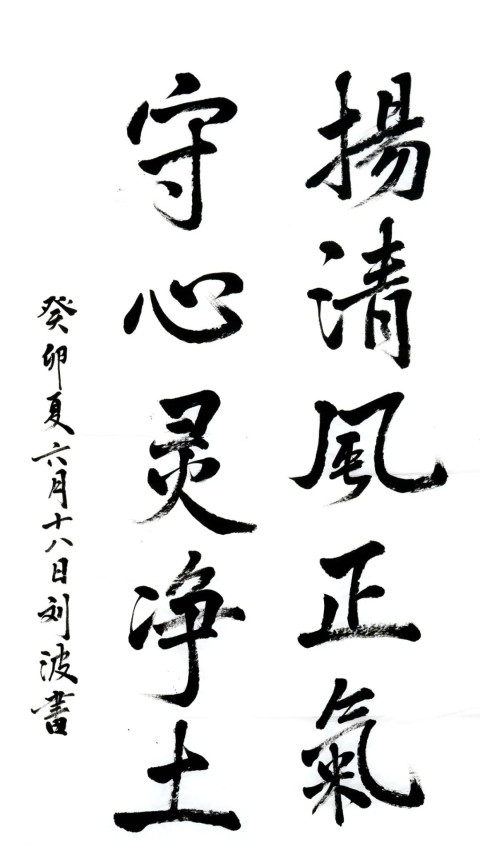 揚清風正氣
守心灵净土
癸卯夏六月十八日刘波書